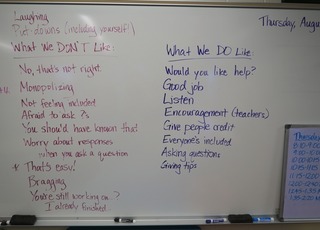 Laughing
Put-downs (including yourself!)
Thursday, Augu
What We DON'T Like:
No, that's not right
Monopolizing
Not feeling included
Afraid to ask ?s
You should have known that
Worry about responses
when you ask a question
* That's easy!
Bragging
You're still working on..?
I already finished
What We DO Like:
Would you like help?
Good job
Listen
Encouragement (teachers)
Give people credit
Everyone's included
Asking questions
Giving tips
Thursday